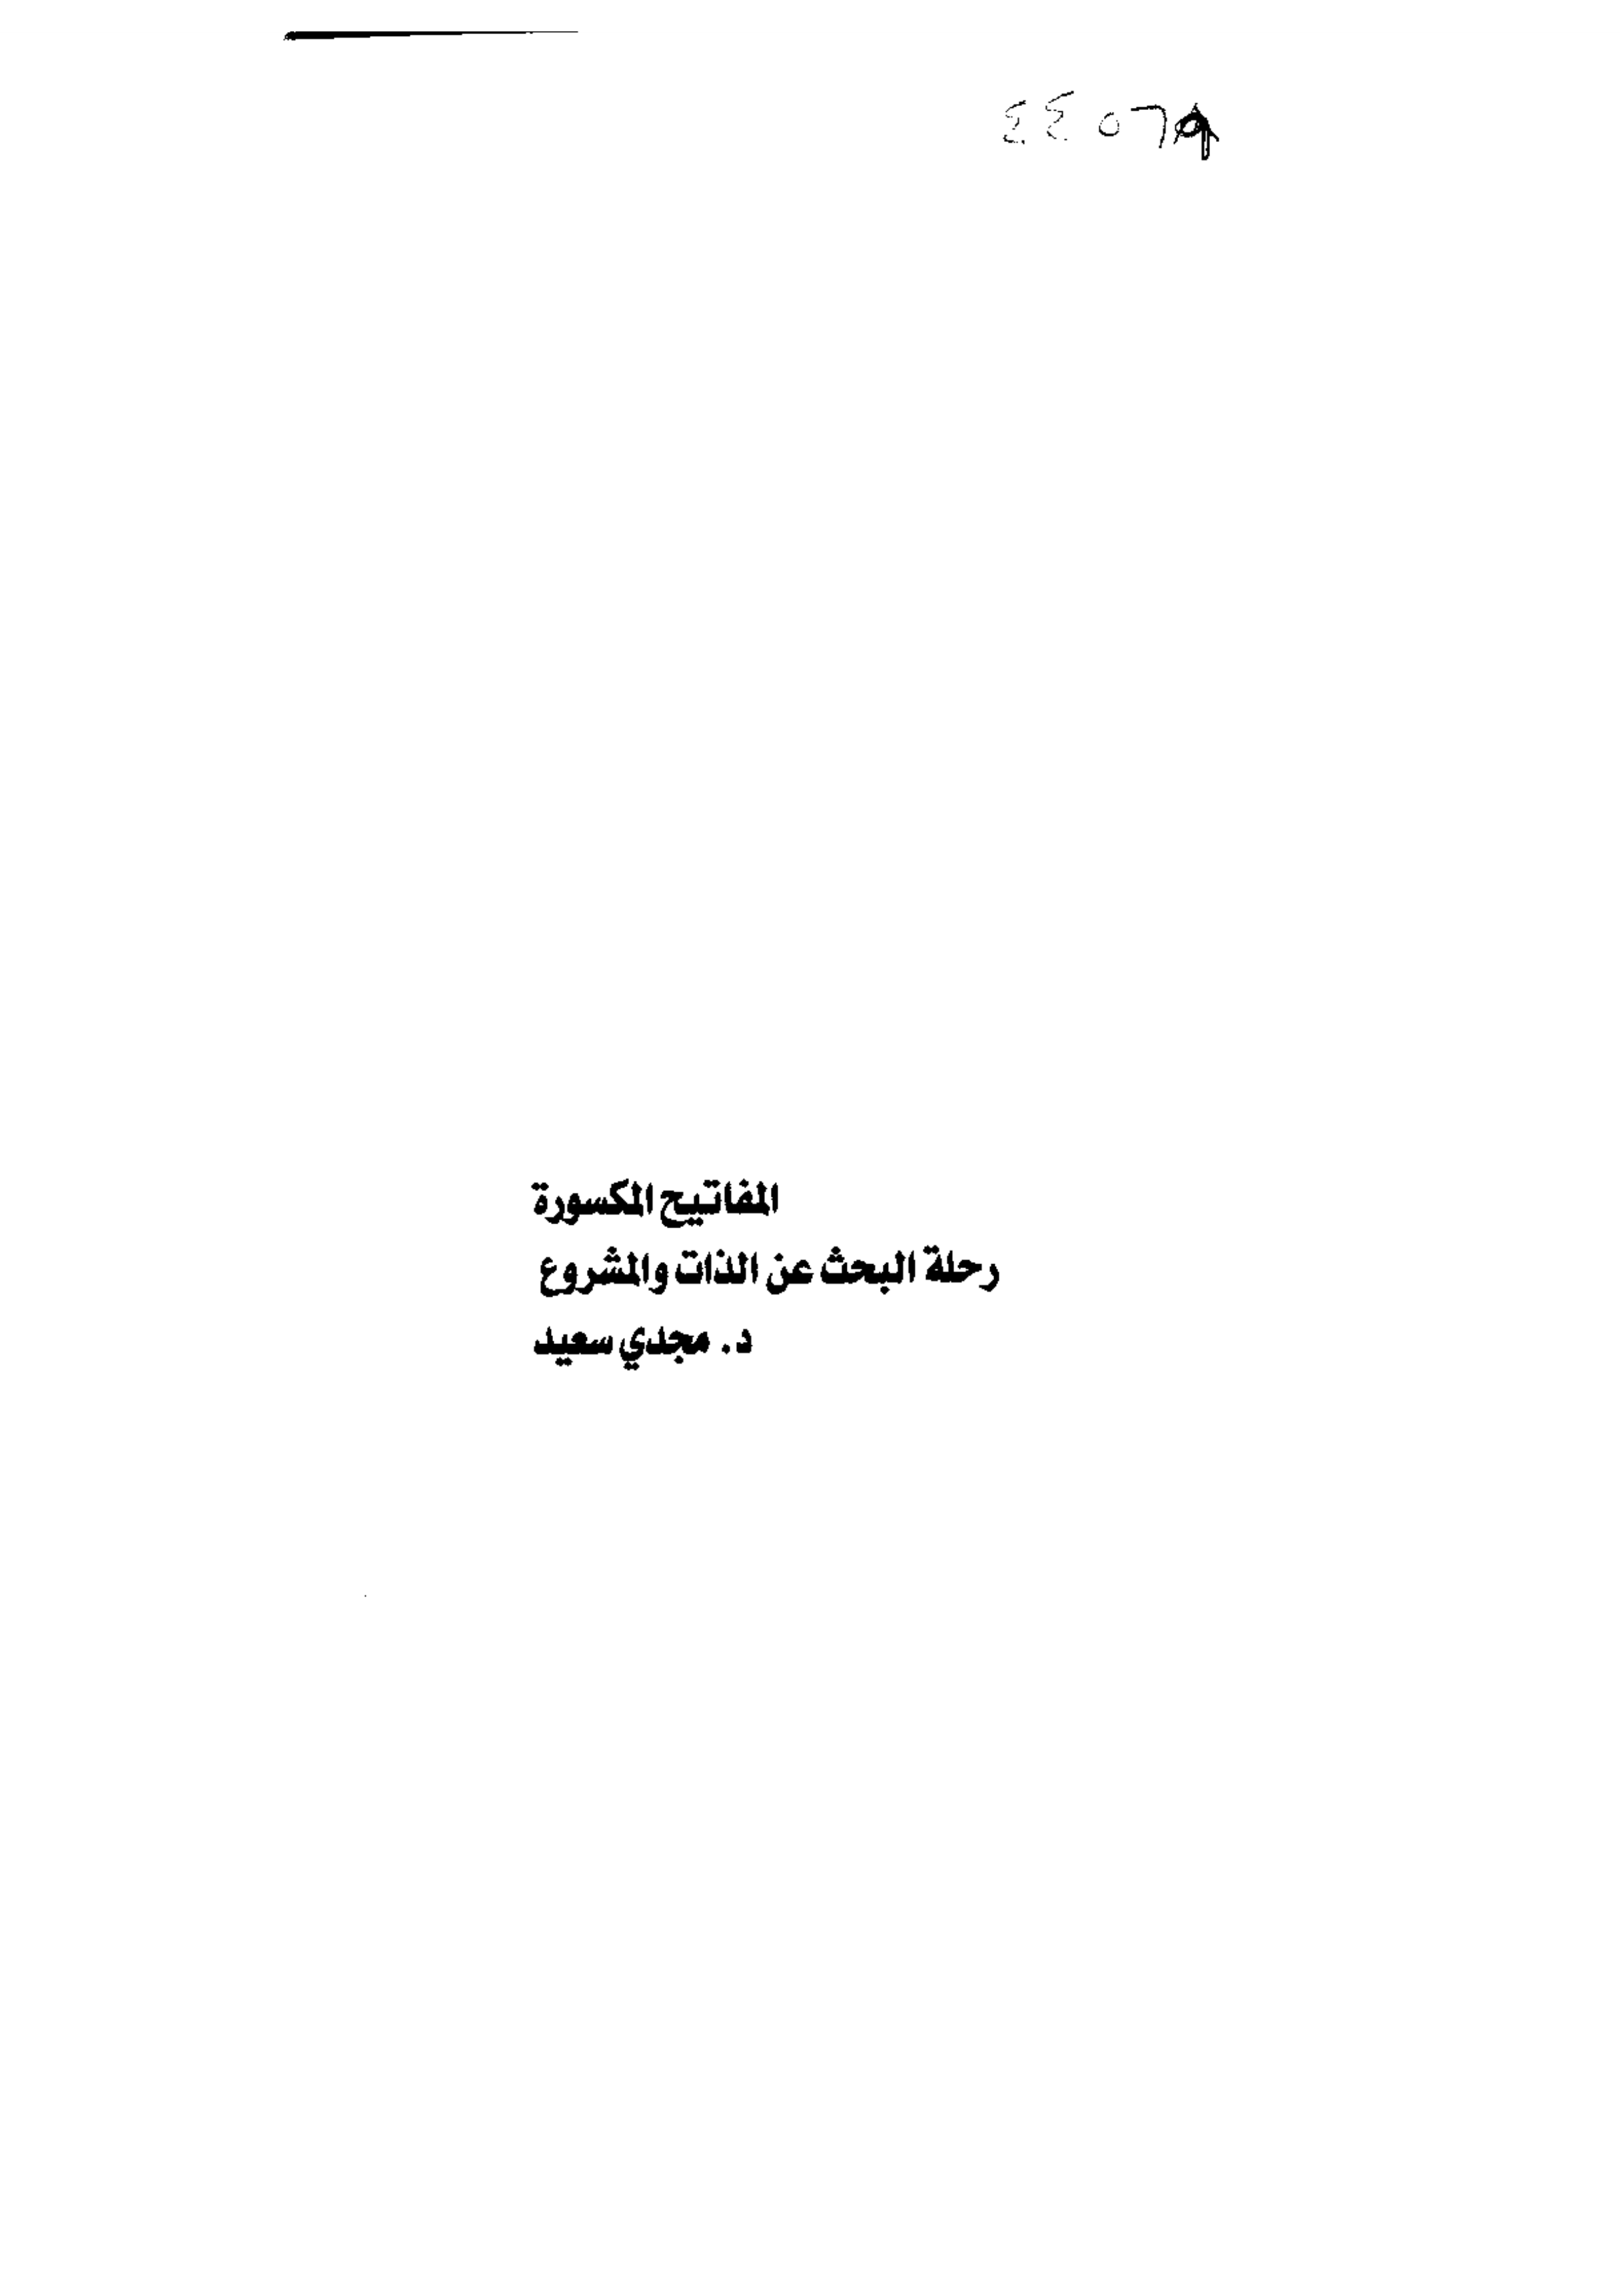 المفاتيح المكسورة
رحلة البحث عن الذات والمشروع
د. مجدي سعيد